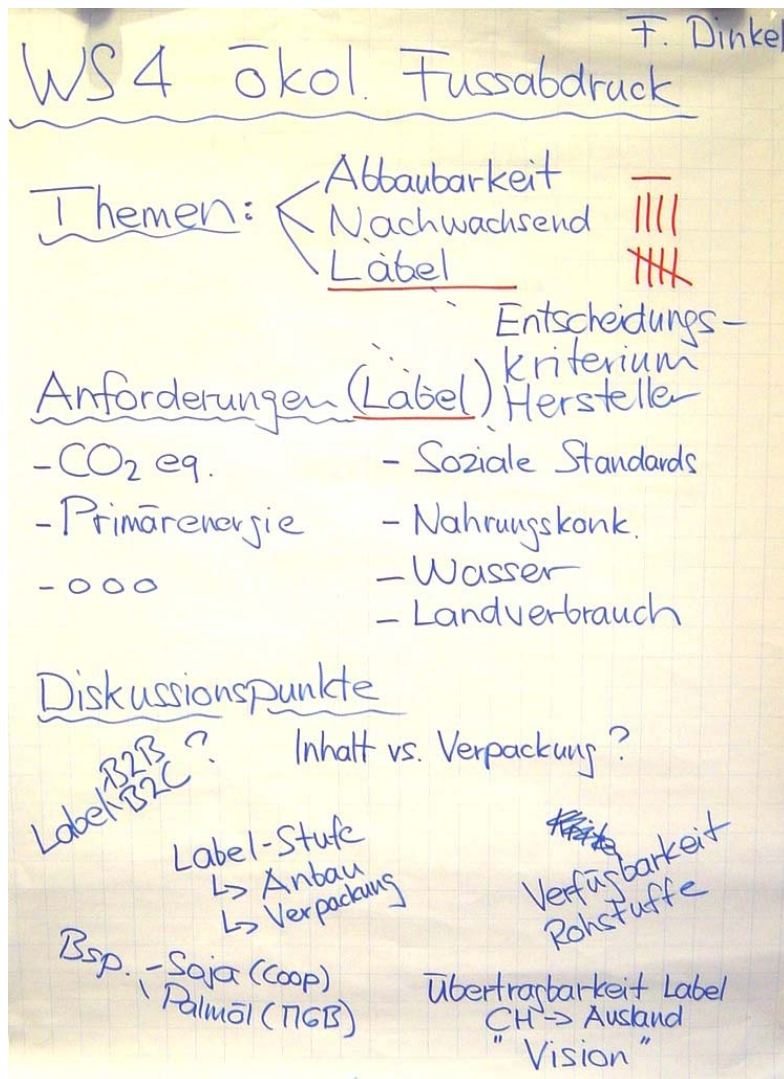 F. Dinkel
WS4 ökol. Fussabdruck
Themen:
Abbaubarkeit —
Nachwachsend ||||
Label ||||
Entscheidungs-
kriterium
Hersteller
Anforderungen (Label)
- CO2 eq.
- Primärenergie
- ooo
- Soziale Standards
- Nahrungskonk.
- Wasser
- Landverbrauch
Diskussionspunkte
Label B2B ?
B2C
Inhalt vs. Verpackung?
Label-Stufe
↳ Anbau
↳ Verpackung
Verfügbarkeit
Rohstoffe
Bsp. - Soja (Coop)
\ Palmöl (MGB)
Übertragbarkeit Label
CH -> Ausland
"Vision"